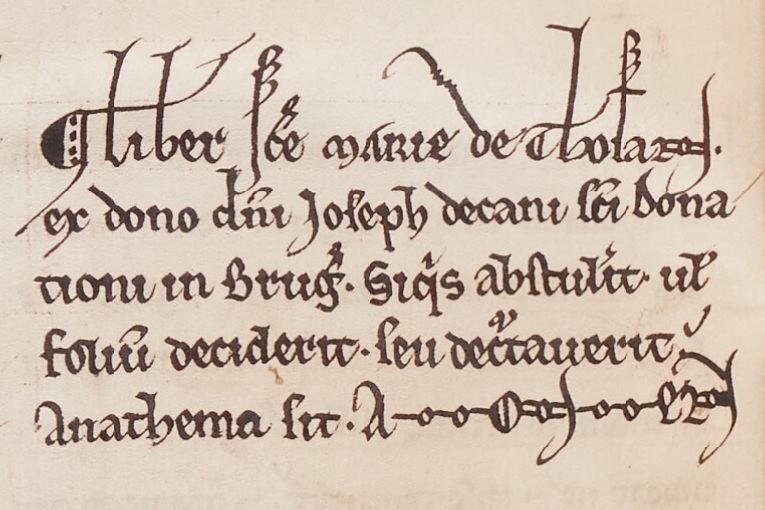 ¶ Liber sc̄e marie de Thosan.
ex dono dn̄i Joseph decani sc̄i Dona
tiani in Brug̉. Siq̄s abstul̉it. ul̉
foliū deciderit. seu decͣtauerit
Anathema sit. Amen